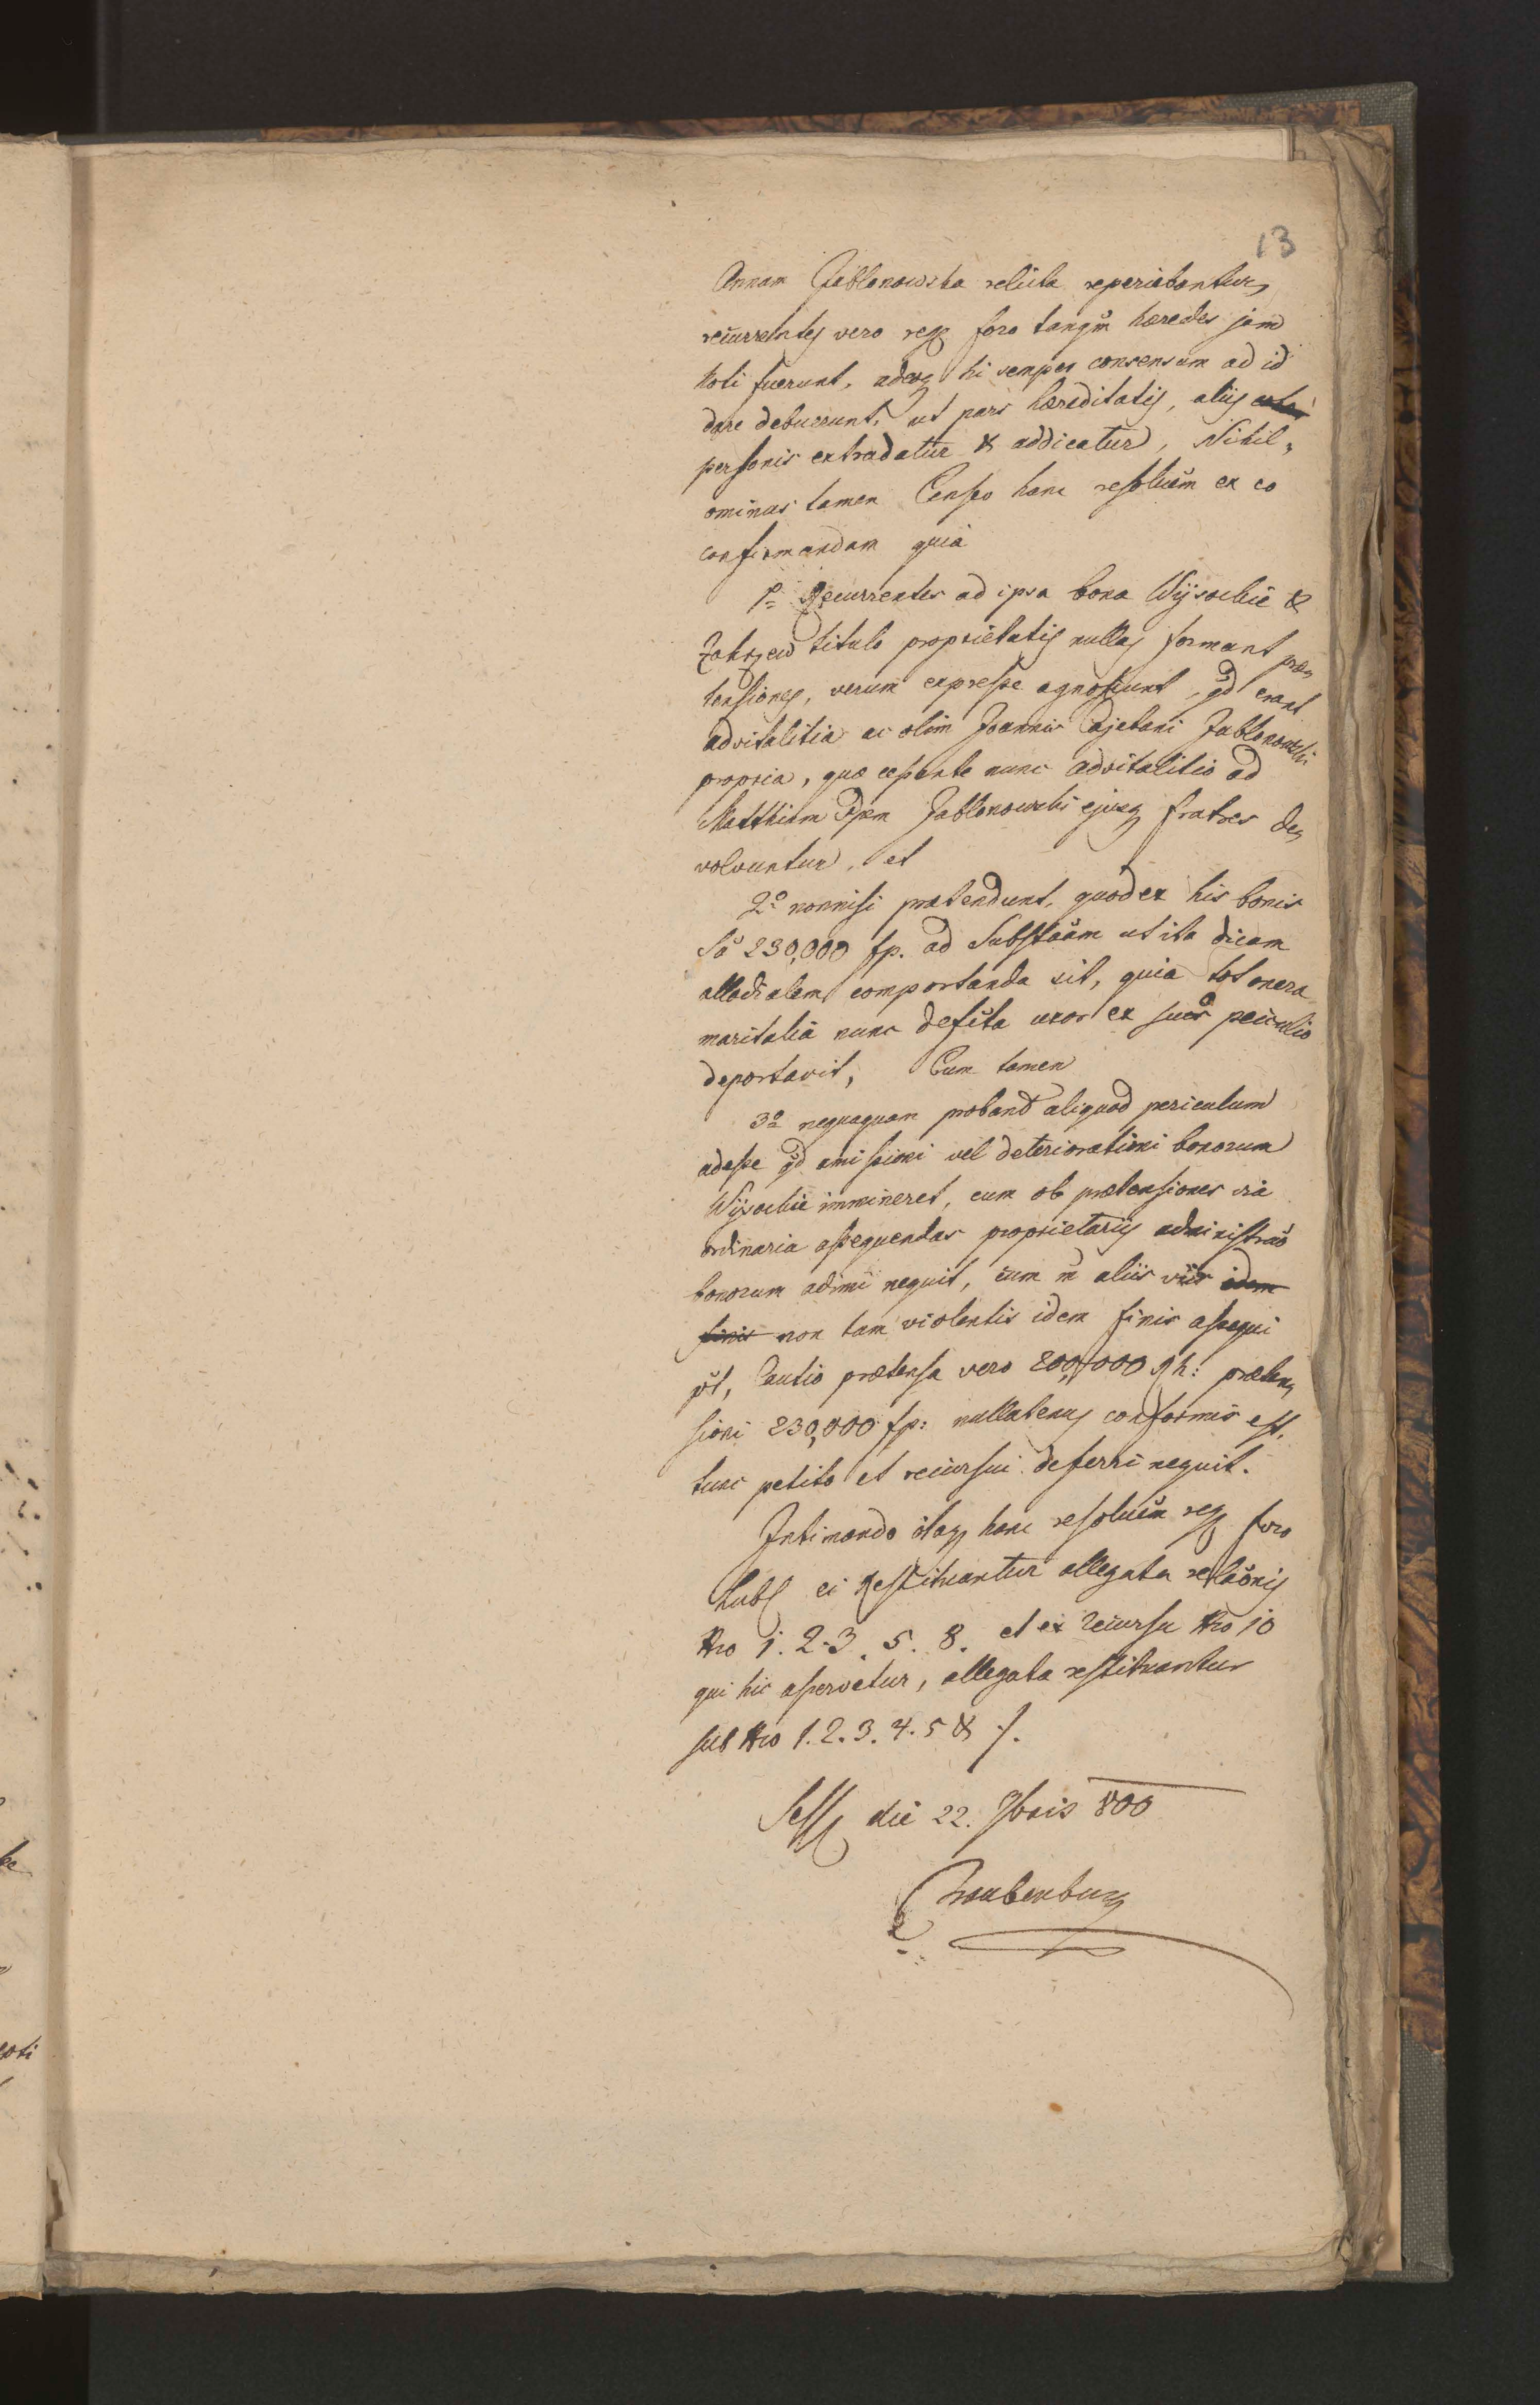 13
Annam Jablonowska relicta reperiebantur,
recurrentes vero reg foro tanqm haeredes jam
noti fuerunt, adeoq hi semper consensum ad id
dare debuerunt, ut pars haereditatis, aliis
personis extradatur & addicatur, Nihil„
ominus tamen Censeo hanc resoluem ex eo
confirmandam quia
1o Recurrentes ad ipsa bona Wysockie &
Zakrzew titulo proprietatis nullas formant prae„
tensiones, verum expresse agnoscunt, qd erant
advitalitia ac olim Joannis Cajetani Jablonowski
propria, quae cessante nunc advitalitio ad
Matthiam Jablonowski ejusq fratres de„
volvuntur, et
2o nonnisi praetendunt, quod ex his bonis
Sa 230,000 fp. ad Substaam ut ita dicam
allodialem comportanda sit, quia tot onera
maritalia nunc defcta uxor ex suo peculio
deportavit, Cum tamen
3o nequaquam probant aliquod periculum
adesse qd amissioni vel deteriorationi bonorum
Wysockie immineret, cum ob praetensiones via
ordinaria assequendas proprietariis administrao
bonorum adimi nequit, cum in aliis viis idem
finis non tam violentis idem finis assequi
pot, Cautio praetensa vero 200,000 Rh: praeten„
sioni 230,000 fp: nullatenus conformis est,
tunc petito et recursui deferri nequit.
Intimando itaq hanc resoluem reg foro
Lubl ei restituantur allegata relaonis
Nro 1. 2. 3. 5. 8. et ex recursu Nro 10
qui hic asservetur, allegata restituantur
sub Nro 1. 2. 3. 4. 5 & /.
Sess die 22. 7bris 800
Traubenburg